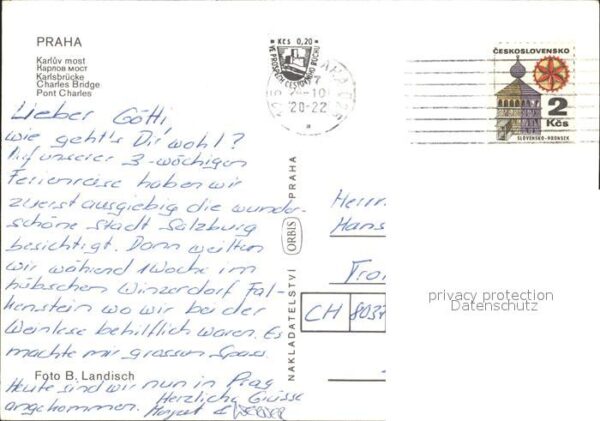 PRAHA
Karlův most
Карлов мост
Karlsbrücke
Charles Bridge
Pont Charles
Kčs 0,20
VE PROSPĚCH CESTOVNÍHO RUCHU
-10
20-22
ČESKOSLOVENSKO
2
Kčs
SLOVENSKO-HRONSEK
Lieber Götti,
wie geht's Dir wohl?
Auf unserer 3-wöchigen
Ferienreise haben wir
zuerst ausgiebig die wunder-
schöne Stadt Salzburg
besichtigt. Dann weilten
wir während 1 Woche im
hübschen Winzerdorf Fal-
kenstein wo wir bei der
Weinlese behilflich waren. Es
machte mir grossen Spass.
Heute sind wir nun in Prag
angekommen. Herzliche Grüsse
Foto B. Landisch
NAKLADATELSTVÍ ORBIS PRAHA
Herrn
Hans
CH 8037
privacy protection
Datenschutz